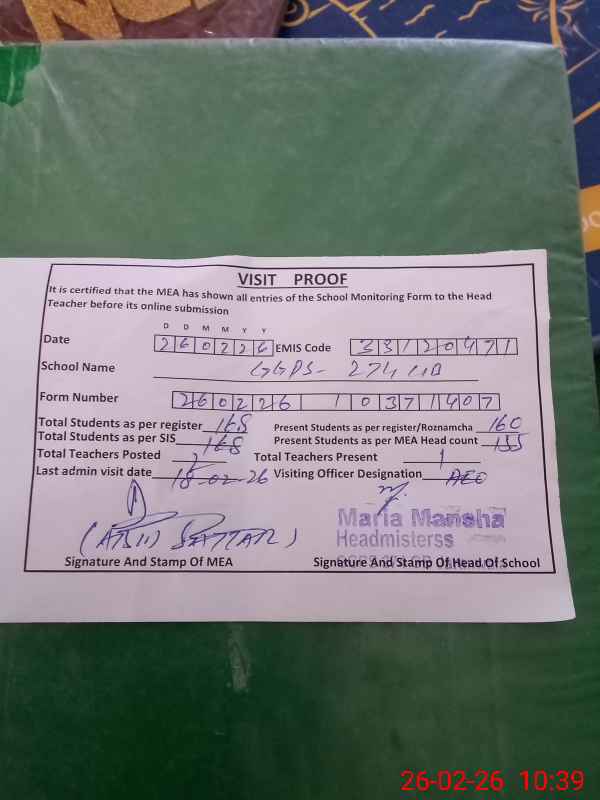 VISIT PROOF
It is certified that the MEA has shown all entries of the School Monitoring Form to the Head
Teacher before its online submission
D D M M Y Y
Date 260226 EMIS Code 33120471
School Name GGPS- 274 GB
Form Number 260226 10371407
Total Students as per register 168 Present Students as per register/Roznamcha 160
Total Students as per SIS 168 Present Students as per MEA Head count 155
Total Teachers Posted Total Teachers Present 1
Last admin visit date 18-02-26 Visiting Officer Designation AEO
Maria Mansha
Headmisterss
Signature And Stamp Of MEA Signature And Stamp Of Head Of School
26-02-26 10:39